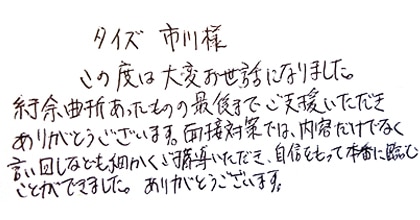 タイズ 市川様
この度は大変お世話になりました。
紆余曲折あったものの最後までご支援いただき
ありがとうございます。面接対策では、内容だけでなく
言い回しなども細かくご指導いただき、自信をもって本番に臨む
ことができました。ありがとうございます。